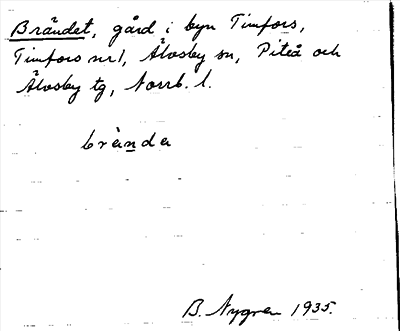 Brändet, gård i byn Timfors,
Timfors nr 1, Älvsby sn, Piteå och
Älvsby tg, Norrb. l.
brända
B. Nygren 1935.